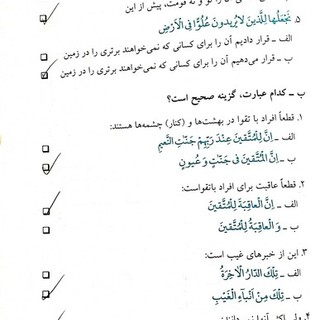 تو و نه قومت، پیش از این
۵. نَجْعَلُهَا لِلَّذِينَ لَا يُرِيدُونَ عُلُوًّا فِي الْأَرْضِ
الف - قرار دادیم آن را برای کسانی که نمی‌خواهند برتری را در زمین
ب - قرار می‌دهیم آن را برای کسانی که نمی‌خواهند برتری را در زمین
ب - کدام عبارت، گزینه صحیح است؟
۱. قطعاً افراد با تقوا در بهشت‌ها و (کنار) چشمه‌ها هستند:
الف - إِنَّ لِلْمُتَّقِينَ عِنْدَ رَبِّهِمْ جَنَّتِ النَّعِيمِ
ب - إِنَّ الْمُتَّقِينَ فِي جَنَّتٍ وَ عُيُونٍ
۲. قطعاً عاقبت برای افراد باتقواست:
الف - إِنَّ الْعَاقِبَةَ لِلْمُتَّقِينَ
ب - وَ الْعَاقِبَةُ لِلْمُتَّقِينَ
۳. این از خبرهای غیب است:
الف - تِلْكَ الدَّارُ الْآخِرَةُ
ب - تِلْكَ مِنْ أَنْبَاءِ الْغَيْبِ